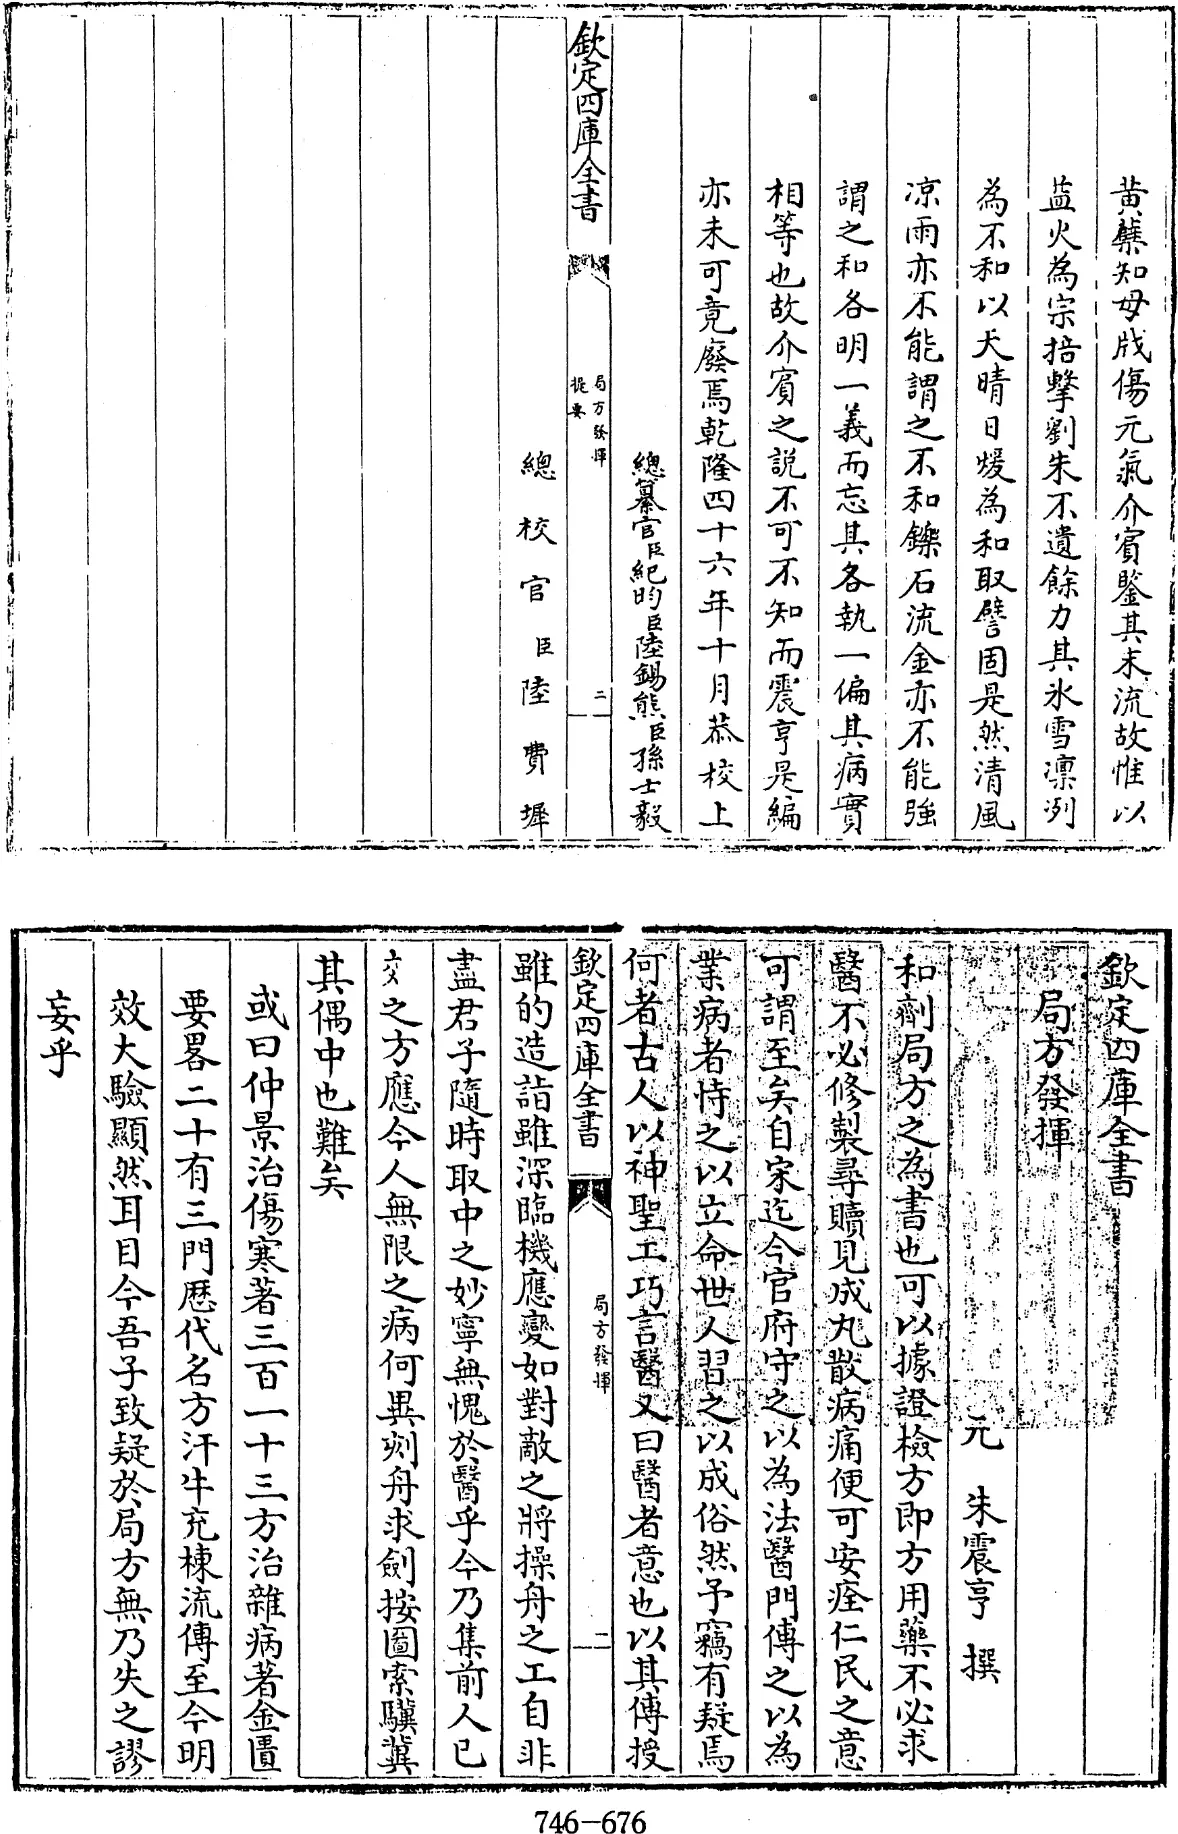 黄蘗知母戕傷元氣介賓鑒其末流故惟以
益火為宗掊擊劉朱不遺餘力其氷雪凛冽
為不和以天晴日煖為和取譬固是然清風
凉雨亦不能謂之不和鑠石流金亦不能強
謂之和各明一義而忘其各執一偏其病實
相等也故介賓之説不可不知而震亨是編
亦未可竟廢焉乾隆四十六年十月恭校上
總纂官臣紀昀臣陸錫熊臣孫士毅
欽定四庫全書
局方發揮
提要
二
總校官臣陸費墀
欽定四庫全書
局方發揮
元 朱震亨 撰
和劑局方之為書也可以據證檢方即方用藥不必求
醫不必修製尋贖見成丸散病痛便可安痊仁民之意
可謂至矣自宋迄今官府守之以為法醫門傳之以為
業病者恃之以立命世人習之以成俗然予竊有疑焉
何者古人以神聖工巧言醫又曰醫者意也以其傳授
欽定四庫全書
局方發揮
一
雖的造詣雖深臨機應變如對敵之將操舟之工自非
盡君子隨時取中之妙寧無愧於醫乎今乃集前人已
效之方應今人無限之病何異刻舟求劍按圖索驥冀
其偶中也難矣
或曰仲景治傷寒著三百一十三方治雜病著金匱
要畧二十有三門厯代名方汗牛充棟流傳至今明
效大驗顯然耳目今吾子致疑於局方無乃失之謬
妄乎
746-676